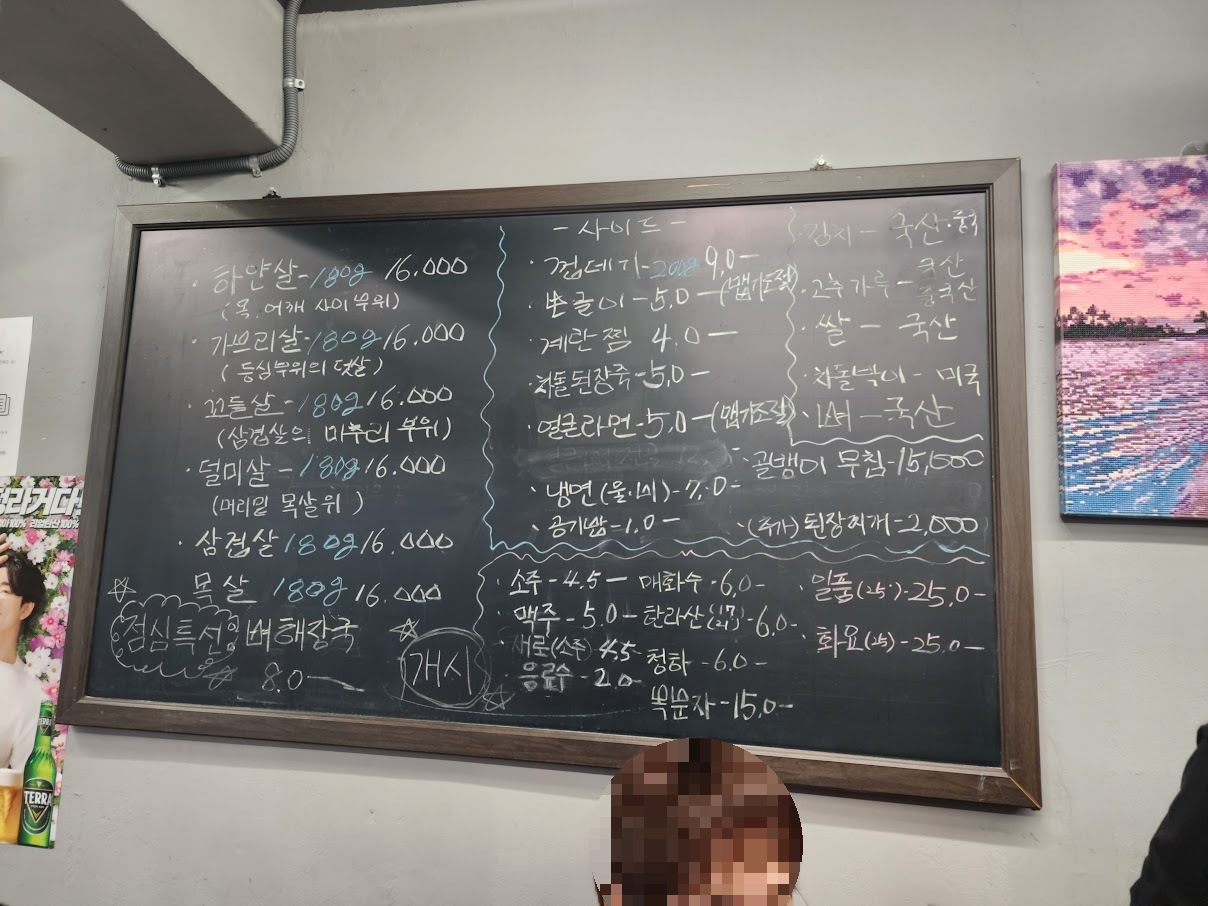 · 하얀살-180g 16.000
(목.어깨 사이부위)
· 가브리살-180g 16.000
(등심부위의 덧살)
· 꼬들살-180g 16.000
(삼겹살의 마추리 부위)
· 덜미살-180g 16.000
(머리밑 목살위)
· 삼겹살 180g 16.000
목살 180g 16.000
점심특선 뼈해장국
8.0-
개시
-사이드-
· 껍데기-200g 9,0-
-5.0-(맵기조절)
· 계란찜 4.0-
· 차돌된장죽-5,0-
· 얼큰라면-5.0-(맵기조절)
· 냉면(물,비)-7.0-
· 공기밥-1.0-
· 골뱅이 무침-15,000
·(추가) 된장찌개-2,000
· 김치- 국산·중국
· 고추가루- 국산 중국산
· 쌀- 국산
· 차돌박이- 미국
· 뼈-국산
· 소주-4.5-
· 맥주-5.0-
· 새로(소주) 4.5
· 음료수-2.0-
매화수-6,0-
한라산(17)-6.0-
청하-6.0-
복분자-15,0-
· 일품(25°)-25,0-
· 화요(25)-25.0-
라거다
리얼탄산 100%
TERRA